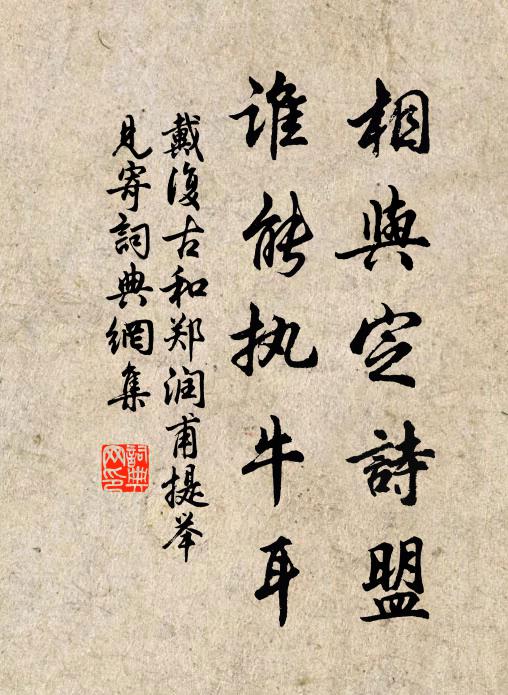 相與定詩盟
谁能执牛耳
戴復古和郑润甫提举
見寄詞典網集
詞典網印